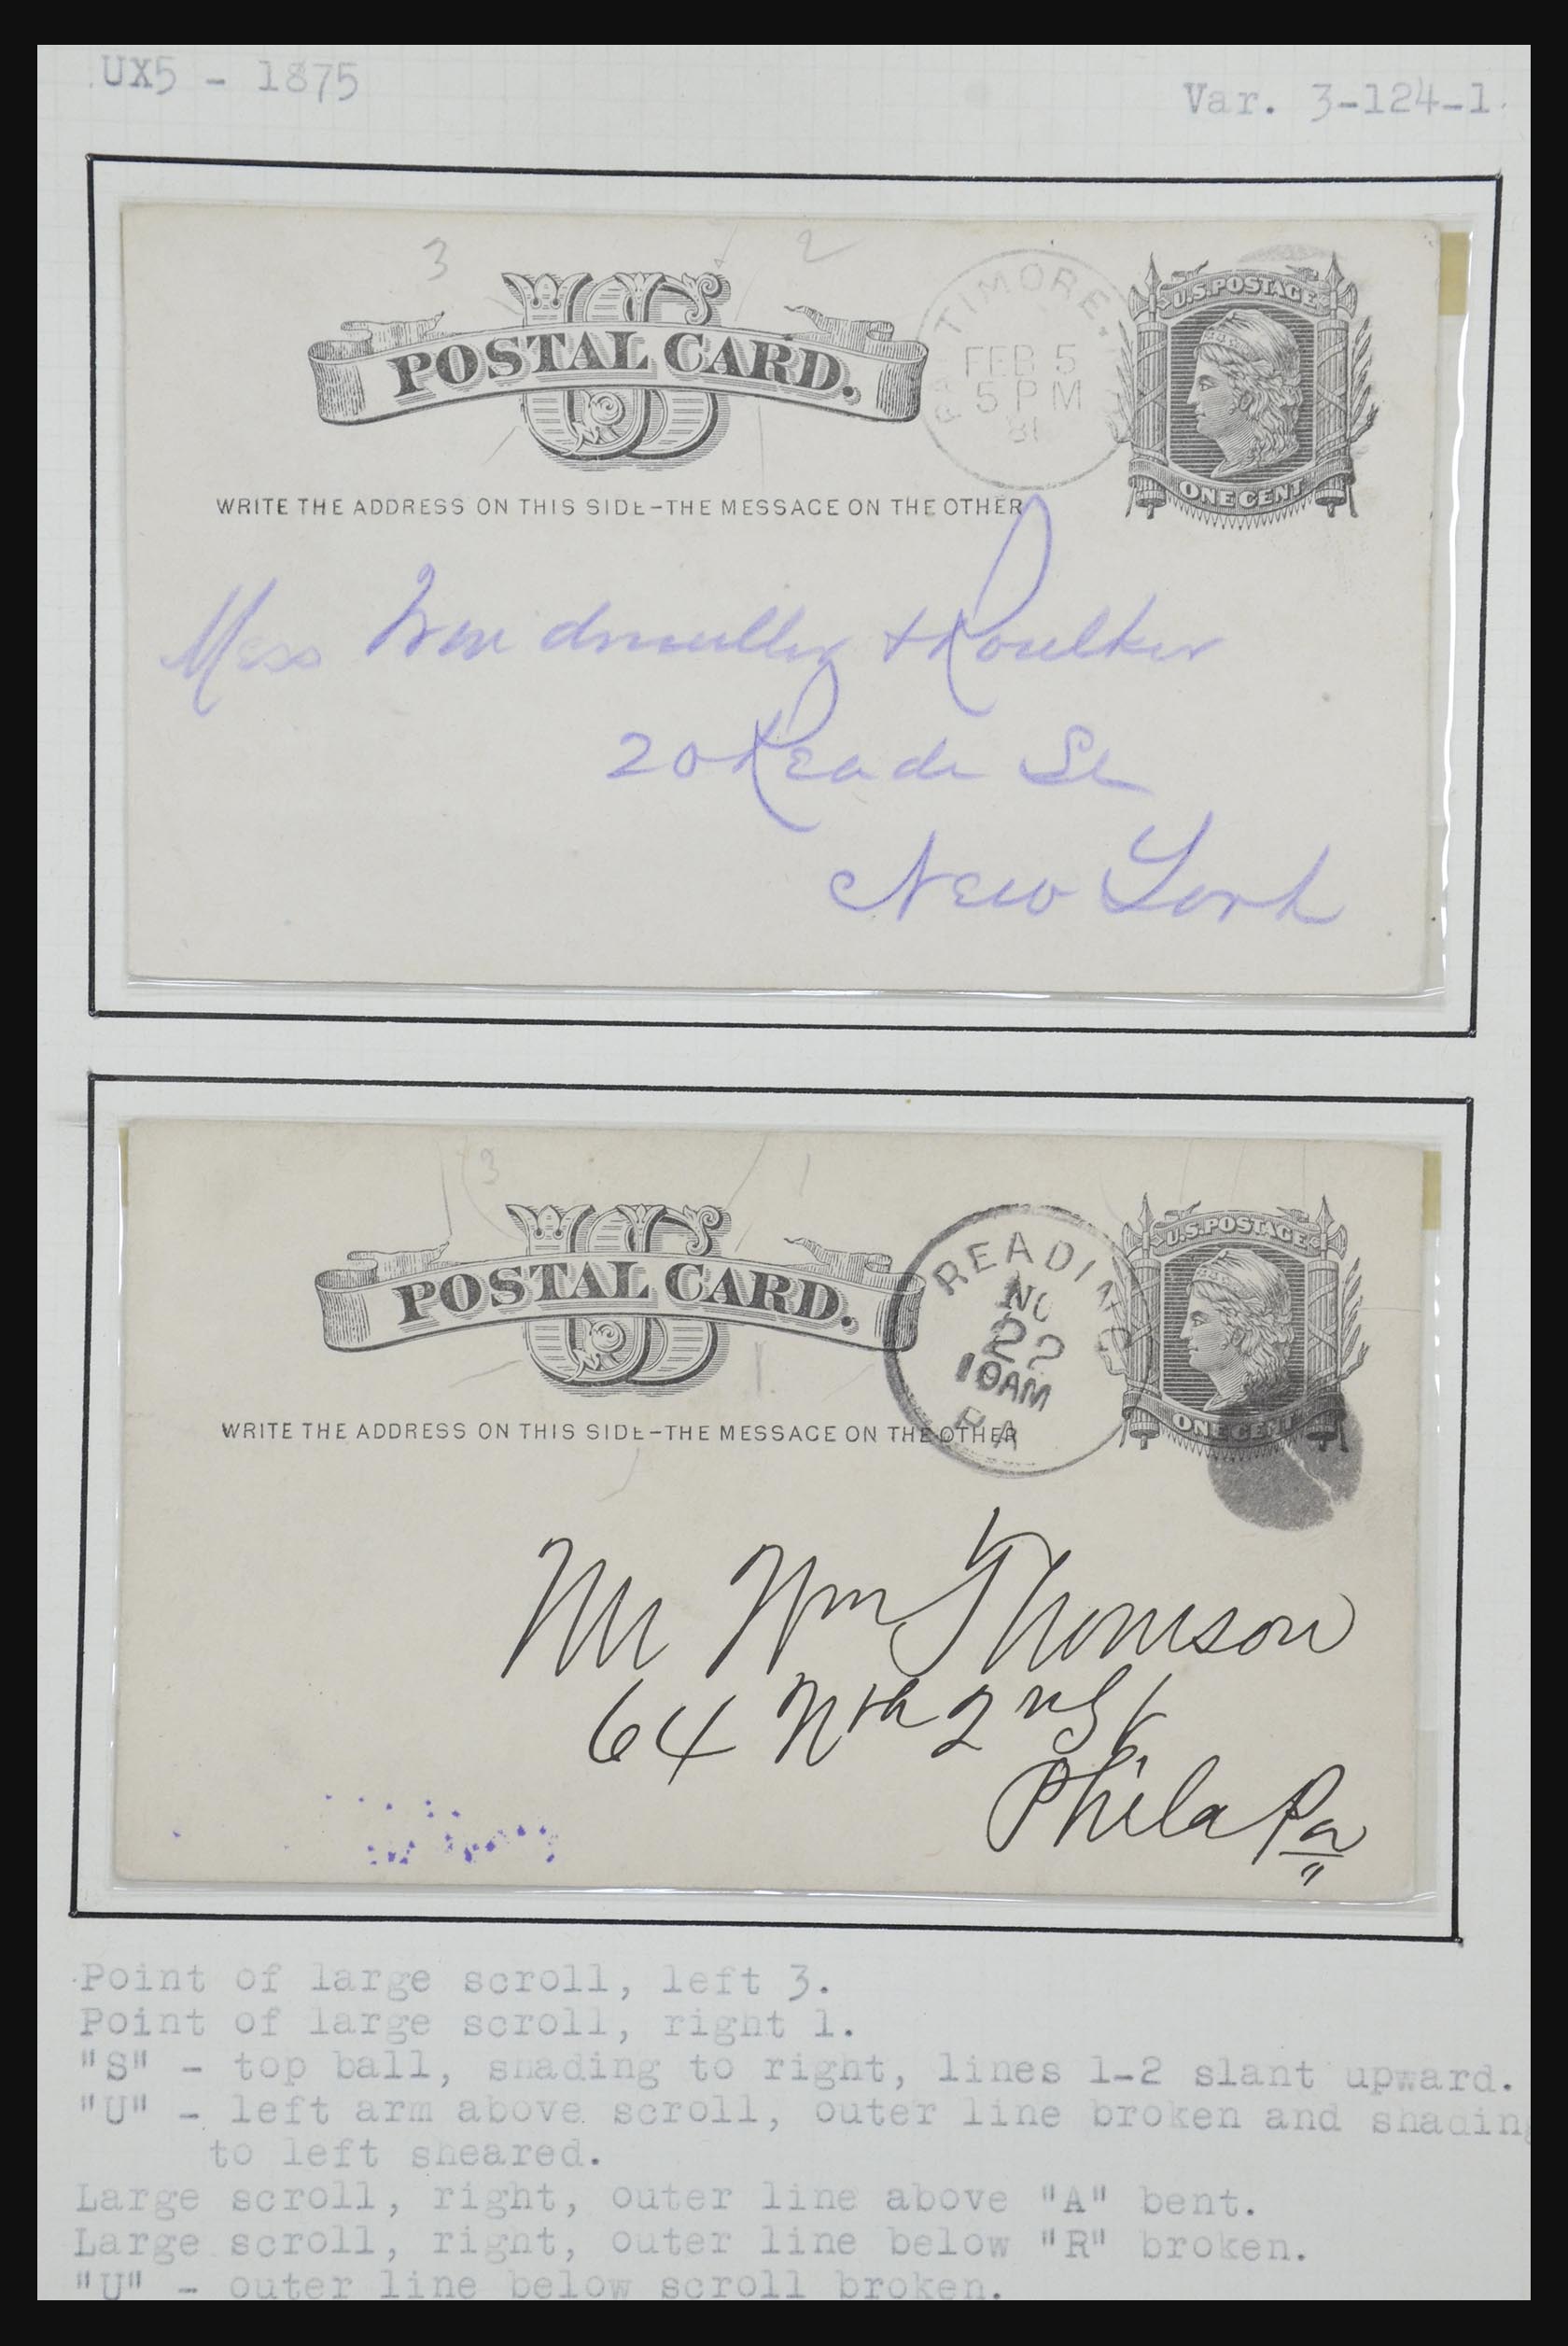 UX5 - 1875
Var. 3-124-1
3
2
US
POSTAL CARD.
TIMORE
FEB 5
5 PM
81
U.S.POSTAGE
ONE CENT
WRITE THE ADDRESS ON THIS SIDE-THE MESSAGE ON THE OTHER
Mess
20 Reade St
New York
3
1
US
POSTAL CARD.
READING
NO
22
10AM
PA
U.S.POSTAGE
ONE CENT
WRITE THE ADDRESS ON THIS SIDE-THE MESSAGE ON THE OTHER
Mr Wm Thomson
64 Nth 2nd St
Phila Pa
Point of large scroll, left 3.
Point of large scroll, right 1.
"S" - top ball, shading to right, lines 1-2 slant upward.
"U" - left arm above scroll, outer line broken and shading
to left sheared.
Large scroll, right, outer line above "A" bent.
Large scroll, right, outer line below "R" broken.
"U" - outer line below scroll broken.